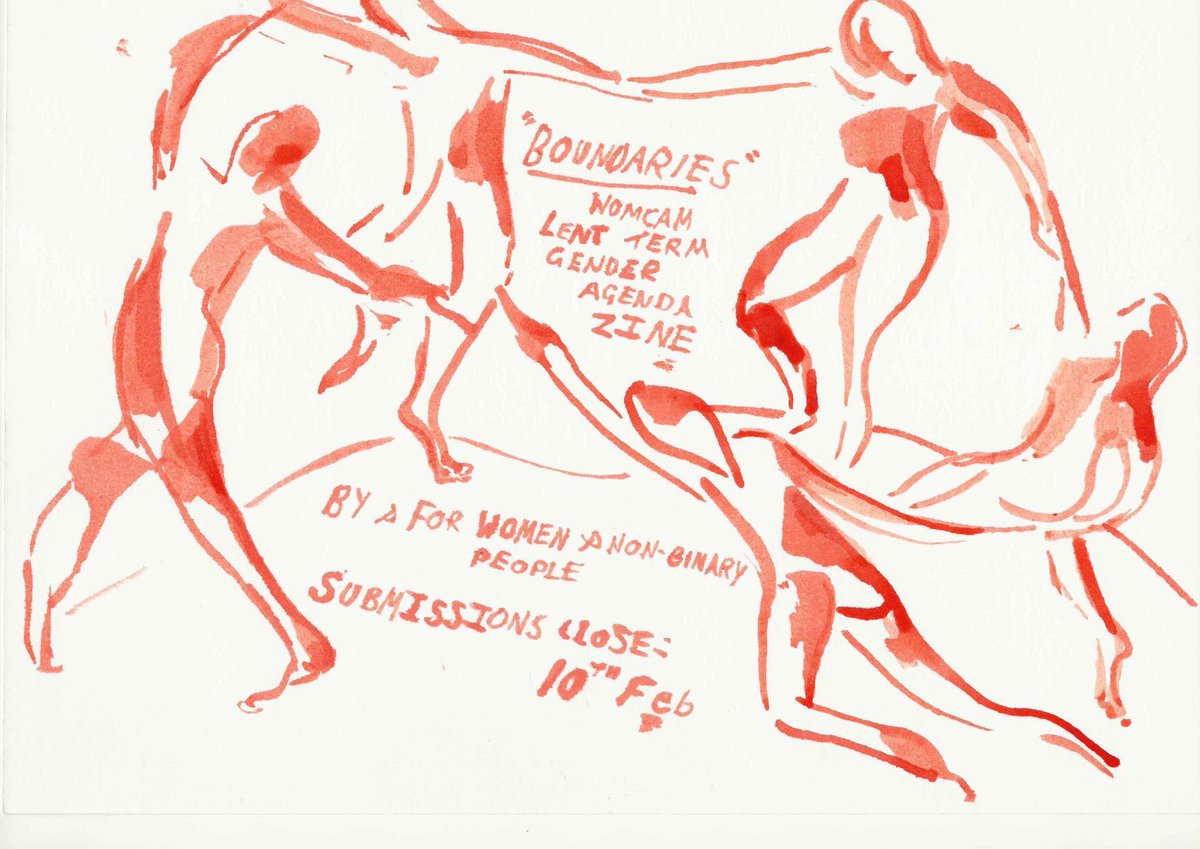 "BOUNDARIES"
WOMCAM
LENT TERM
GENDER
AGENDA
ZINE
BY & FOR WOMEN & NON-BINARY
PEOPLE
SUBMISSIONS CLOSE:
10TH Feb